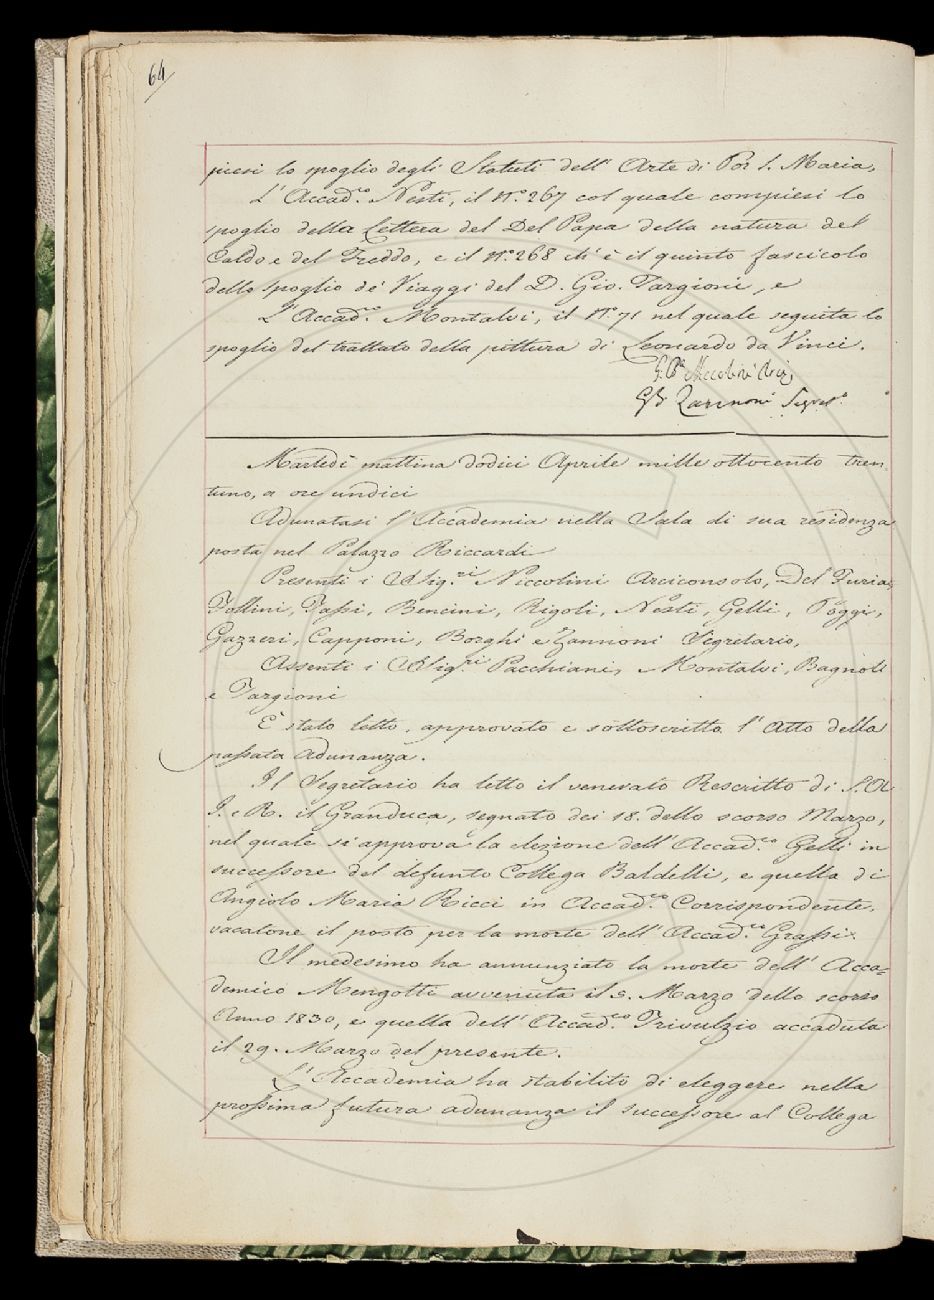 64
piesi lo spoglio degli Statuti dell' Arte di Por S. Maria,
L' Accad.co Nesti, il N.o 267 col quale compiesi lo
spoglio della Lettera del Del Papa della natura del
Caldo e del Freddo, e il N.o 268 ch' è il quinto fascicolo
dello spoglio de' Viaggi del D. Gio. Targioni, e
L' Accad.co Montalvi, il N.o 71 nel quale seguita lo
spoglio del trattato della pittura di Leonardo da Vinci.
G. B. Niccolini Arcic.
G. B. Zannoni Segret.o
Martedì mattina dodici Aprile mille ottocento tren
tuno, a ore undici
Adunatasi l' Accademia nella Sala di sua residenza
posta nel Palazzo Riccardi
Presenti i SSig.ri Niccolini Arciconsolo, Del Furia,
Follini, Tassi, Bencini, Rigoli, Nesti, Gelli, Poggi,
Gazzeri, Capponi, Borghi e Zannoni Segretario,
Assenti i SSig.ri Pacchiani, Montalvi, Bagnoli
e Targioni
È stato letto, approvato e sottoscritto l' Atto della
passata adunanza.
Il Segretario ha letto il venerato Rescritto di S. A.
I. e R. il Granduca, segnato dei 18. dello scorso Marzo,
nel quale si approva la elezione dell' Accad.co Gelli in
successore del defunto Collega Baldelli, e quella di
Angiolo Maria Ricci in Accad.co Corrispondente,
vacatone il posto per la morte dell' Accad.co Grassi.
Il medesimo ha annunziato la morte dell' Acca=
demico Mengotti avvenuta il 5. Marzo dello scorso
Anno 1830, e quella dell' Accad.co Trivulzio accaduta
il 29. Marzo del presente.
L' Accademia ha stabilito di eleggere nella
prossima futura adunanza il successore al Collega